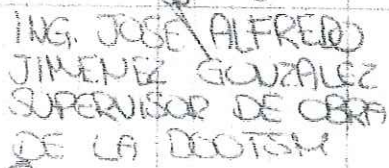 ING. JOSE ALFREDO
JIMENEZ GONZALEZ
SUPERVISOR DE OBRA
DE LA DOOTSM